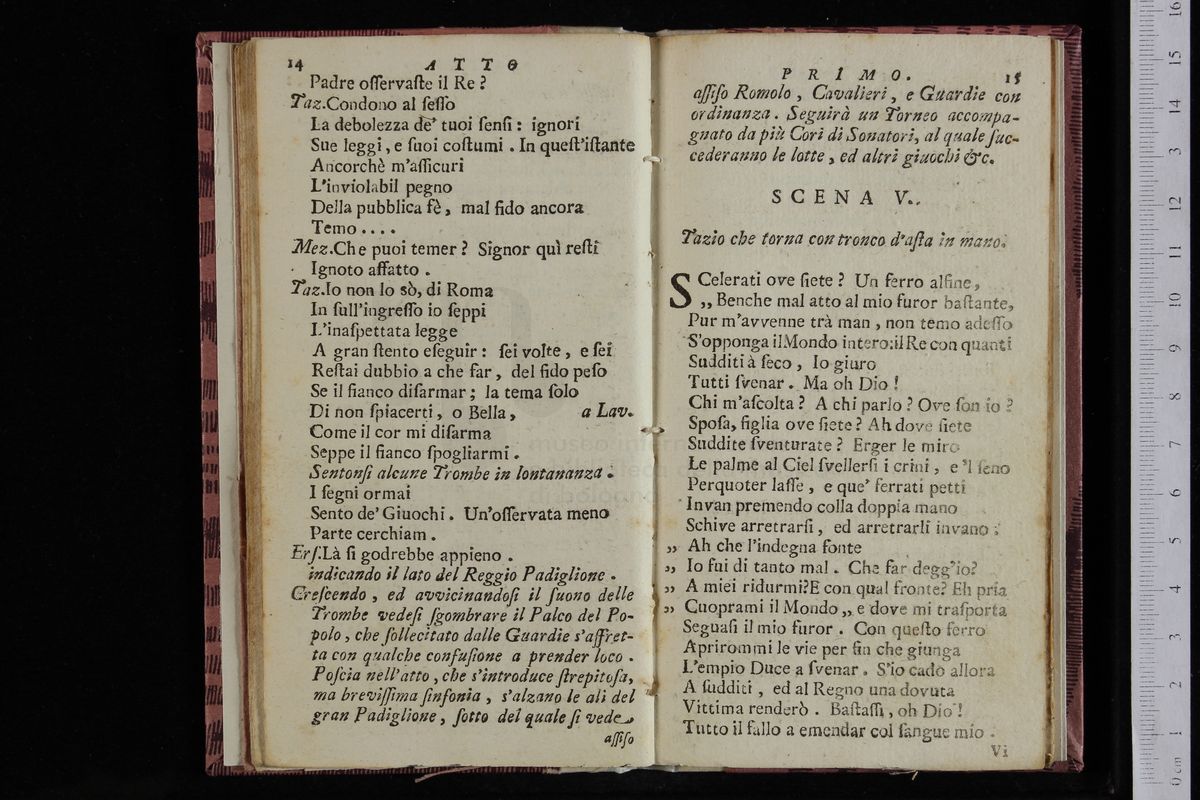 14 ATTO
Padre osservaſte il Re ?
Taz.Condono al ſeſſo
La debolezza de' tuoi ſenſi : ignori
Sue leggi , e ſuoi coſtumi . In queſt'iſtante
Ancorchè m'aſſicuri
L'inviolabil pegno
Della pubblica fè , mal fido ancora
Temo . . . .
Mez.Che puoi temer ? Signor quì reſti
Ignoto affatto .
Taz.Io non lo sò, di Roma
In ſull'ingreſſo io ſeppi
L'inaſpettata legge
A gran ſtento eſeguir : ſei volte , e ſei
Reſtai dubbio a che far , del fido peſo
Se il fianco diſarmar ; la tema ſolo
Di non ſpiacerti , o Bella , a Lav.
Come il cor mi diſarma
Seppe il fianco ſpogliarmi .
Sentonſi alcune Trombe in lontananza .
I ſegni ormai
Sento de' Giuochi . Un'oſſervata meno
Parte cerchiam .
Erſ.Là ſi godrebbe appieno .
indicando il lato del Reggio Padiglione .
Creſcendo , ed avvicinandoſi il ſuono delle
Trombe vedeſi ſgombrare il Palco del Po-
polo , che ſollecitato dalle Guardie s'affret-
ta con qualche confuſione a prender loco .
Poſcia nell'atto , che s'introduce ſtrepitoſa,
ma breviſſima ſinfonia , s'alzano le ali del
gran Padiglione , ſotto del quale ſi vede
aſſiſo
PRIMO. 15
aſſiſo Romolo , Cavalieri , e Guardie con
ordinanza . Seguirà un Torneo accompa-
gnato da più Cori di Sonatori, al quale ſuc-
cederanno le lotte , ed altri giuochi &c.
SCENA V.
Tazio che torna con tronco d'aſta in mano.
SCelerati ove ſiete ? Un ferro alfine ,
,, Benche mal atto al mio furor baſtante,
Pur m'avvenne trà man , non temo adeſſo
S'opponga il Mondo intero:il Re con quanti
Sudditi à ſeco , Io giuro
Tutti ſvenar . Ma oh Dio !
Chi m'aſcolta ? A chi parlo ? Ove ſon io ?
Spoſa, figlia ove ſiete ? Ah dove ſiete
Suddite ſventurate ? Erger le miro
Le palme al Ciel ſvellerſi i crini , e 'l ſeno
Perquoter laſſe , e que' ferrati petti
Invan premendo colla doppia mano
Schive arretrarſi , ed arretrarli invano :
,, Ah che l'indegna fonte
,, Io fui di tanto mal . Che far degg'io?
,, A miei ridurmi?E con qual fronte? Eh pria
,, Cuoprami il Mondo ,, e dove mi traſporta
Seguaſi il mio furor . Con queſto ferro
Aprirommi le vie per ſin che giunga
L'empio Duce a ſvenar . S'io cado allora
A ſudditi , ed al Regno una dovuta
Vittima renderò . Baſtaſſi , oh Dio !
Tutto il fallo a emendar col ſangue mio .
Vi